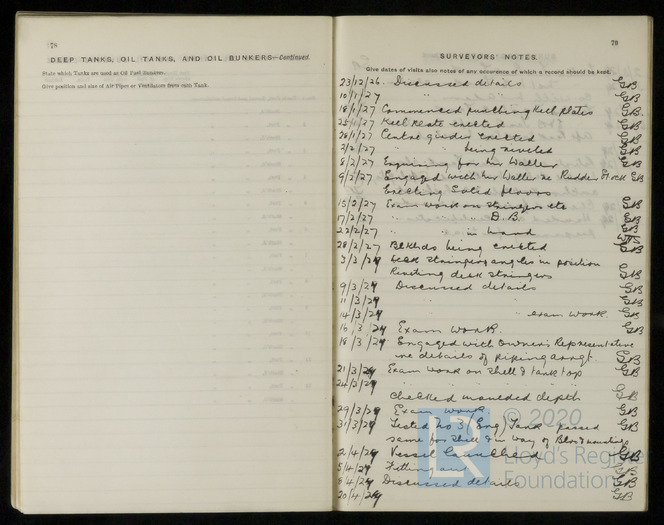 78
DEEP TANKS, OIL TANKS, AND OIL BUNKERS—Continued.
State which Tanks are used as Oil Fuel Bunkers.
Give position and size of Air Pipes or Ventilators from each Tank.
79
SURVEYORS' NOTES.
Give dates of visits also notes of any occurence of which a record should be kept.
23/12/26 Discussed details GB
10/1/27 " " GB
18/1/27 Commenced punching Keel Plates GB
25/1/27 Keel Plate erected GB
26/1/27 Centre girder erected GB
2/2/27 " " being riveted GB
8/2/27 for Mr Waller GB
9/2/27 Engaged with Mr Waller re Rudder Stock GB
Erecting Solid floors
15/2/27 Exam work on Stringers etc GB
17/2/27 " " D.B. GB
22/2/27 " " in hand
28/2/27 Bkhds being erected GB
3/3/27 Deck stringer angles in position
Riveting deck stringers GB
9/3/27 Discussed details GB
11/3/27 " " GB
14/3/27 " " exam work. GB
16/3/27 Exam work. GB
18/3/27 Engaged with Owner's Representative
re details of piping arrgt. GB
21/3/27 Exam work on Shell & tank top GB
24/3/27
Checked moulded depth GB
29/3/27 Exam work. GB
31/3/27 Tested No 3 (Eng) Tank passed
same for Shell & in way of
2/4/27 Vessel Launched GB
5/4/27 Fitting out GB
Discussed details GB
20/4/27 GB
LR
© 2020
Lloyd's Register
Foundation